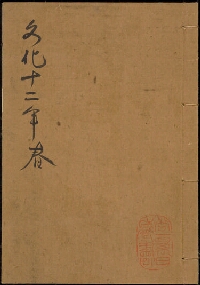 文化十二年春